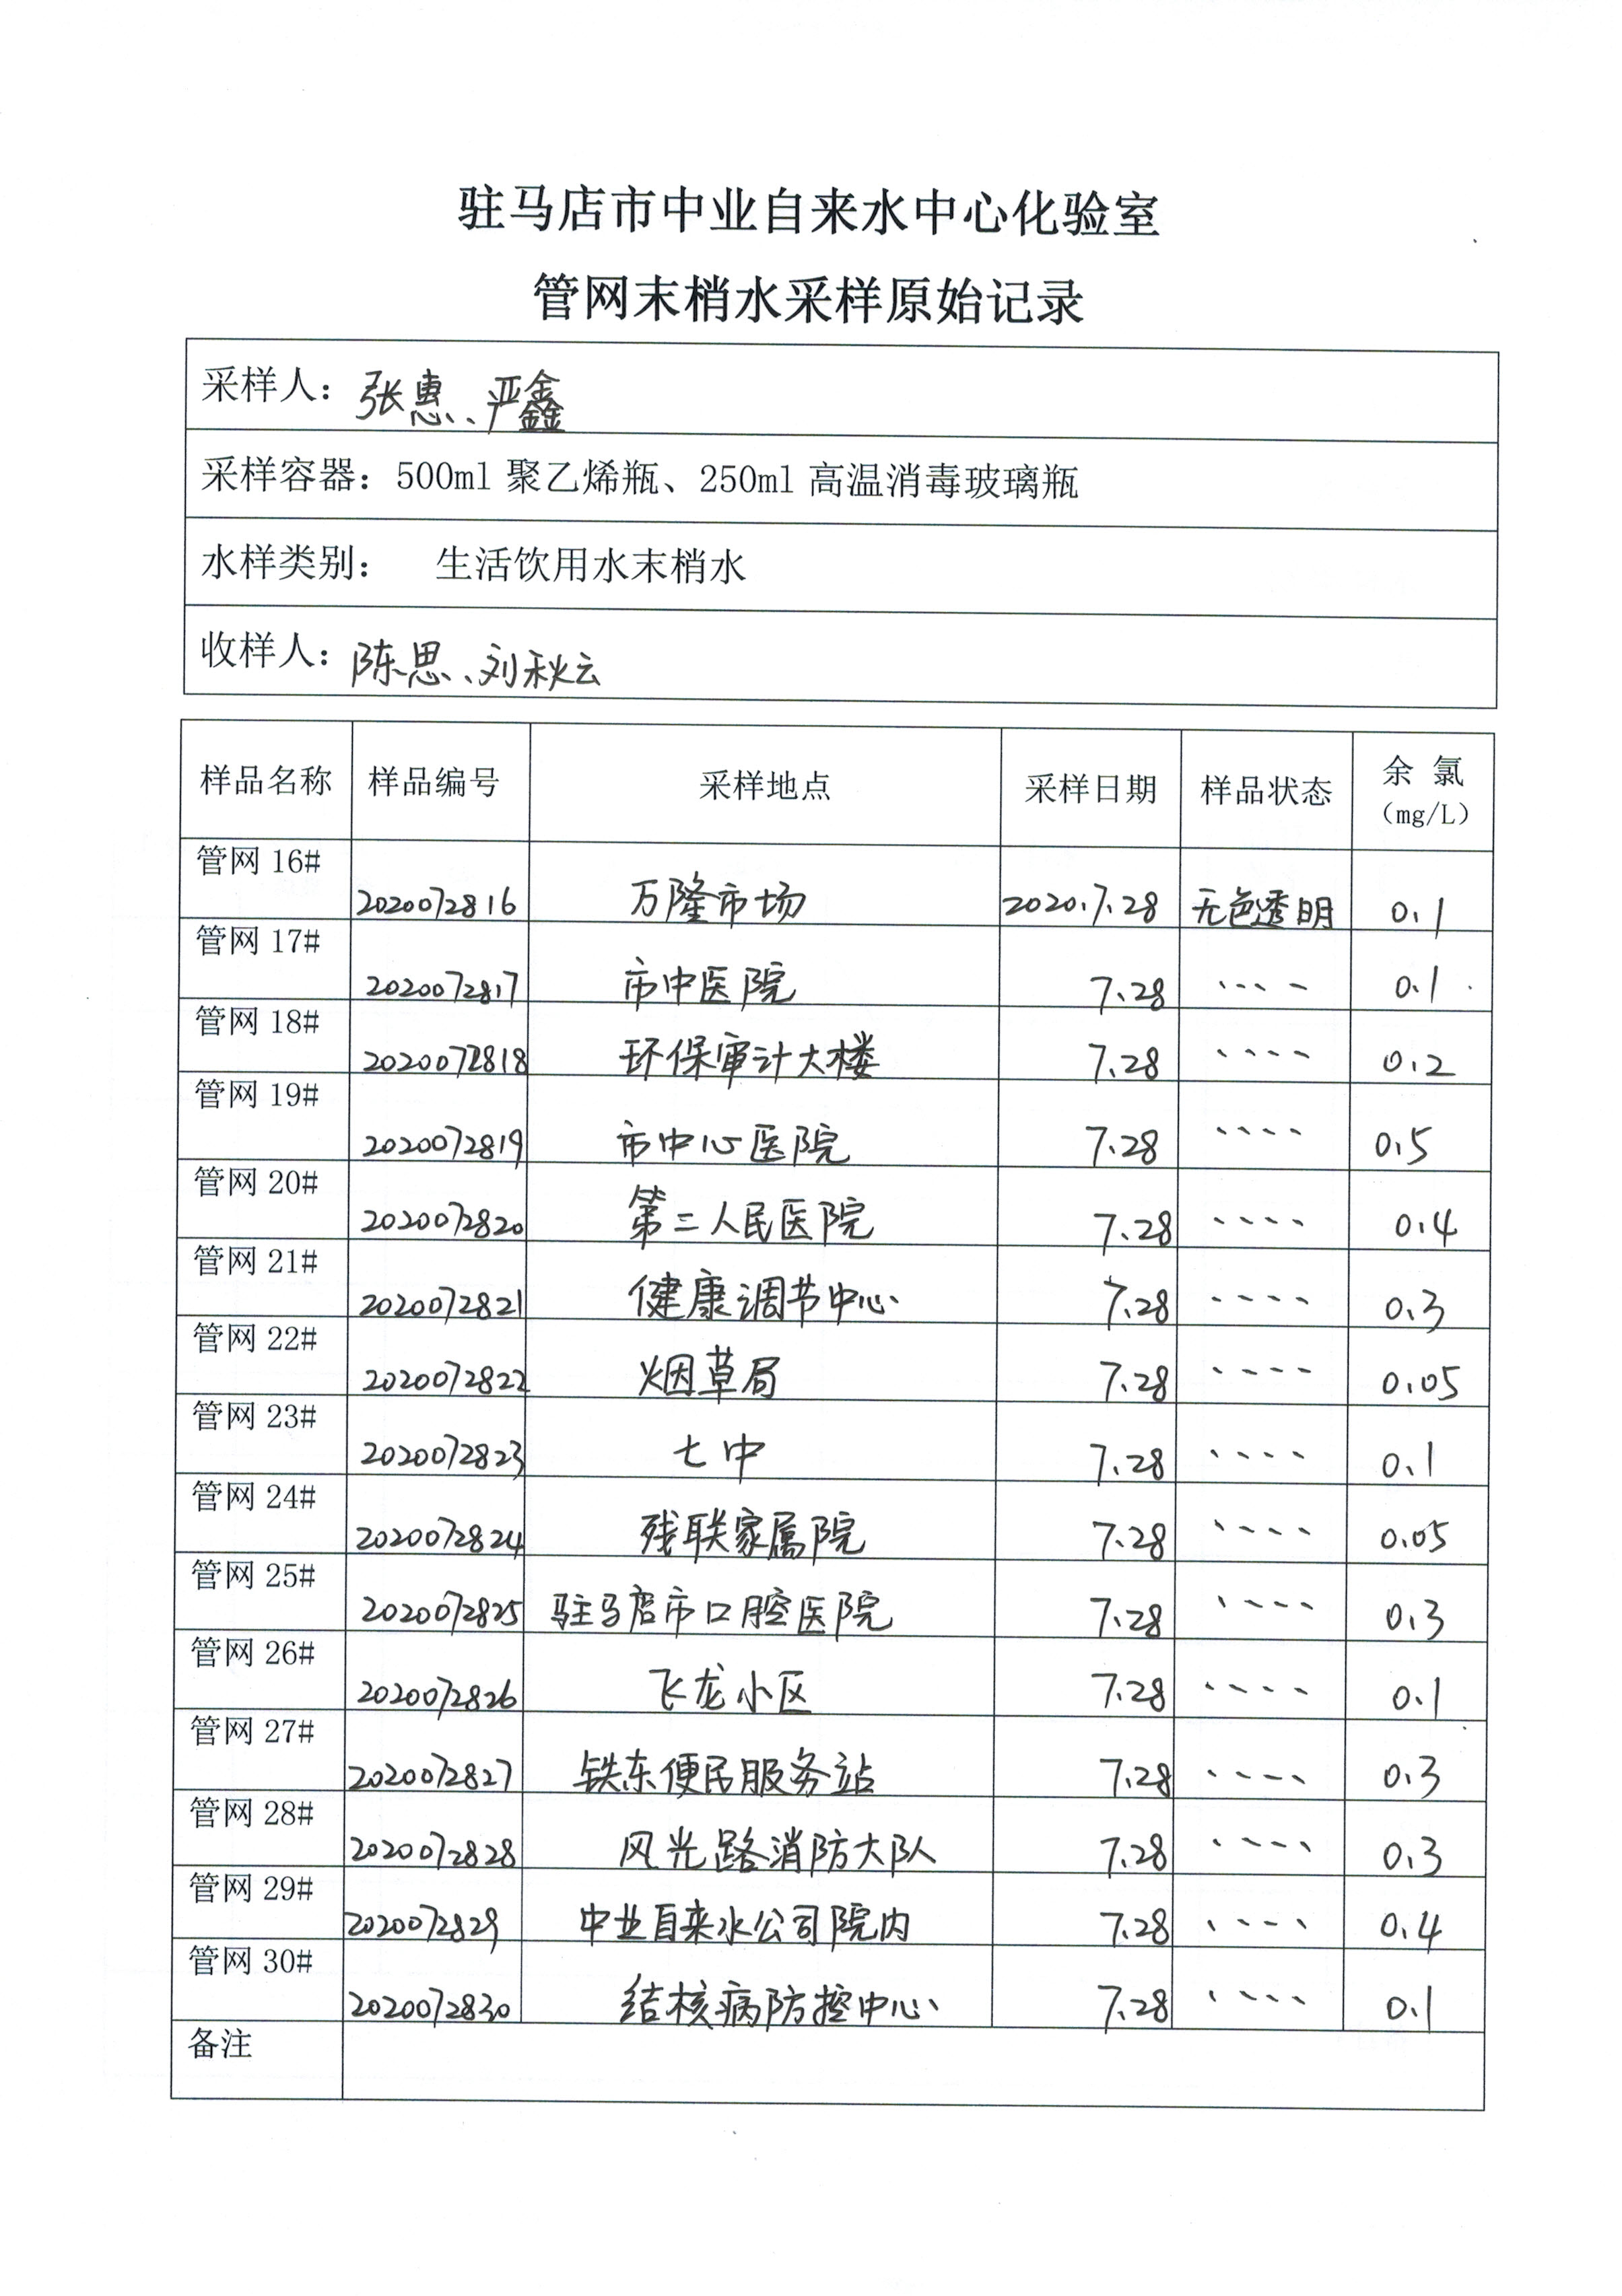 驻马店市中业自来水中心化验室
管网末梢水采样原始记录
采样人：张惠、严鑫
采样容器：500ml聚乙烯瓶、250ml高温消毒玻璃瓶
水样类别： 生活饮用水末梢水
收样人：陈思、刘秋云
样品名称 样品编号 采样地点 采样日期 样品状态 余氯（mg/L）
管网16# 2020072816 万隆市场 2020.7.28 无色透明 0.1
管网17# 2020072817 市中医院 7.28 、、、、 0.1
管网18# 2020072818 环保审计大楼 7.28 、、、、 0.2
管网19# 2020072819 市中心医院 7.28 、、、、 0.5
管网20# 2020072820 第二人民医院 7.28 、、、、 0.4
管网21# 2020072821 健康调节中心 7.28 、、、、 0.3
管网22# 2020072822 烟草局 7.28 、、、、 0.05
管网23# 2020072823 七中 7.28 、、、、 0.1
管网24# 2020072824 残联家属院 7.28 、、、、 0.05
管网25# 2020072825 驻马店市口腔医院 7.28 、、、、 0.3
管网26# 2020072826 飞龙小区 7.28 、、、、 0.1
管网27# 2020072827 铁东便民服务站 7.28 、、、、 0.3
管网28# 2020072828 风光路消防大队 7.28 、、、、 0.3
管网29# 2020072829 中业自来水公司院内 7.28 、、、、 0.4
管网30# 2020072830 结核病防控中心 7.28 、、、、 0.1
备注